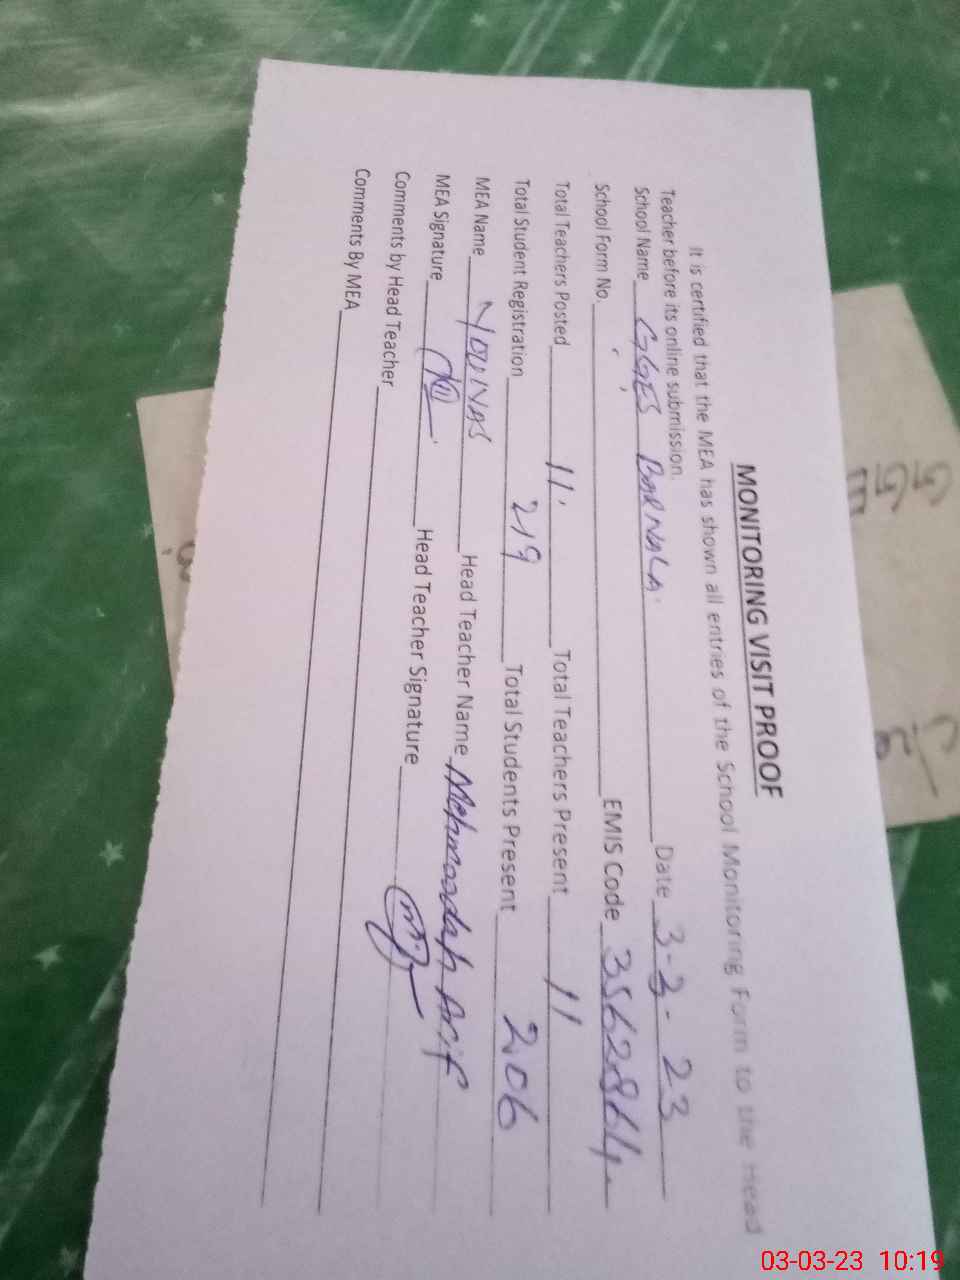 MONITORING VISIT PROOF
It is certified that the MEA has shown all entries of the School Monitoring Form to the Head
Teacher before its online submission.
School Name GGES BARNALA Date 3-3-23
School Form No. EMIS Code 35628644
Total Teachers Posted 11 Total Teachers Present 11
Total Student Registration 219 Total Students Present 206
MEA Name YOUNAS Head Teacher Name Mehmoodah Arif
MEA Signature Head Teacher Signature
Comments by Head Teacher
Comments By MEA
GGE
03-03-23 10:19